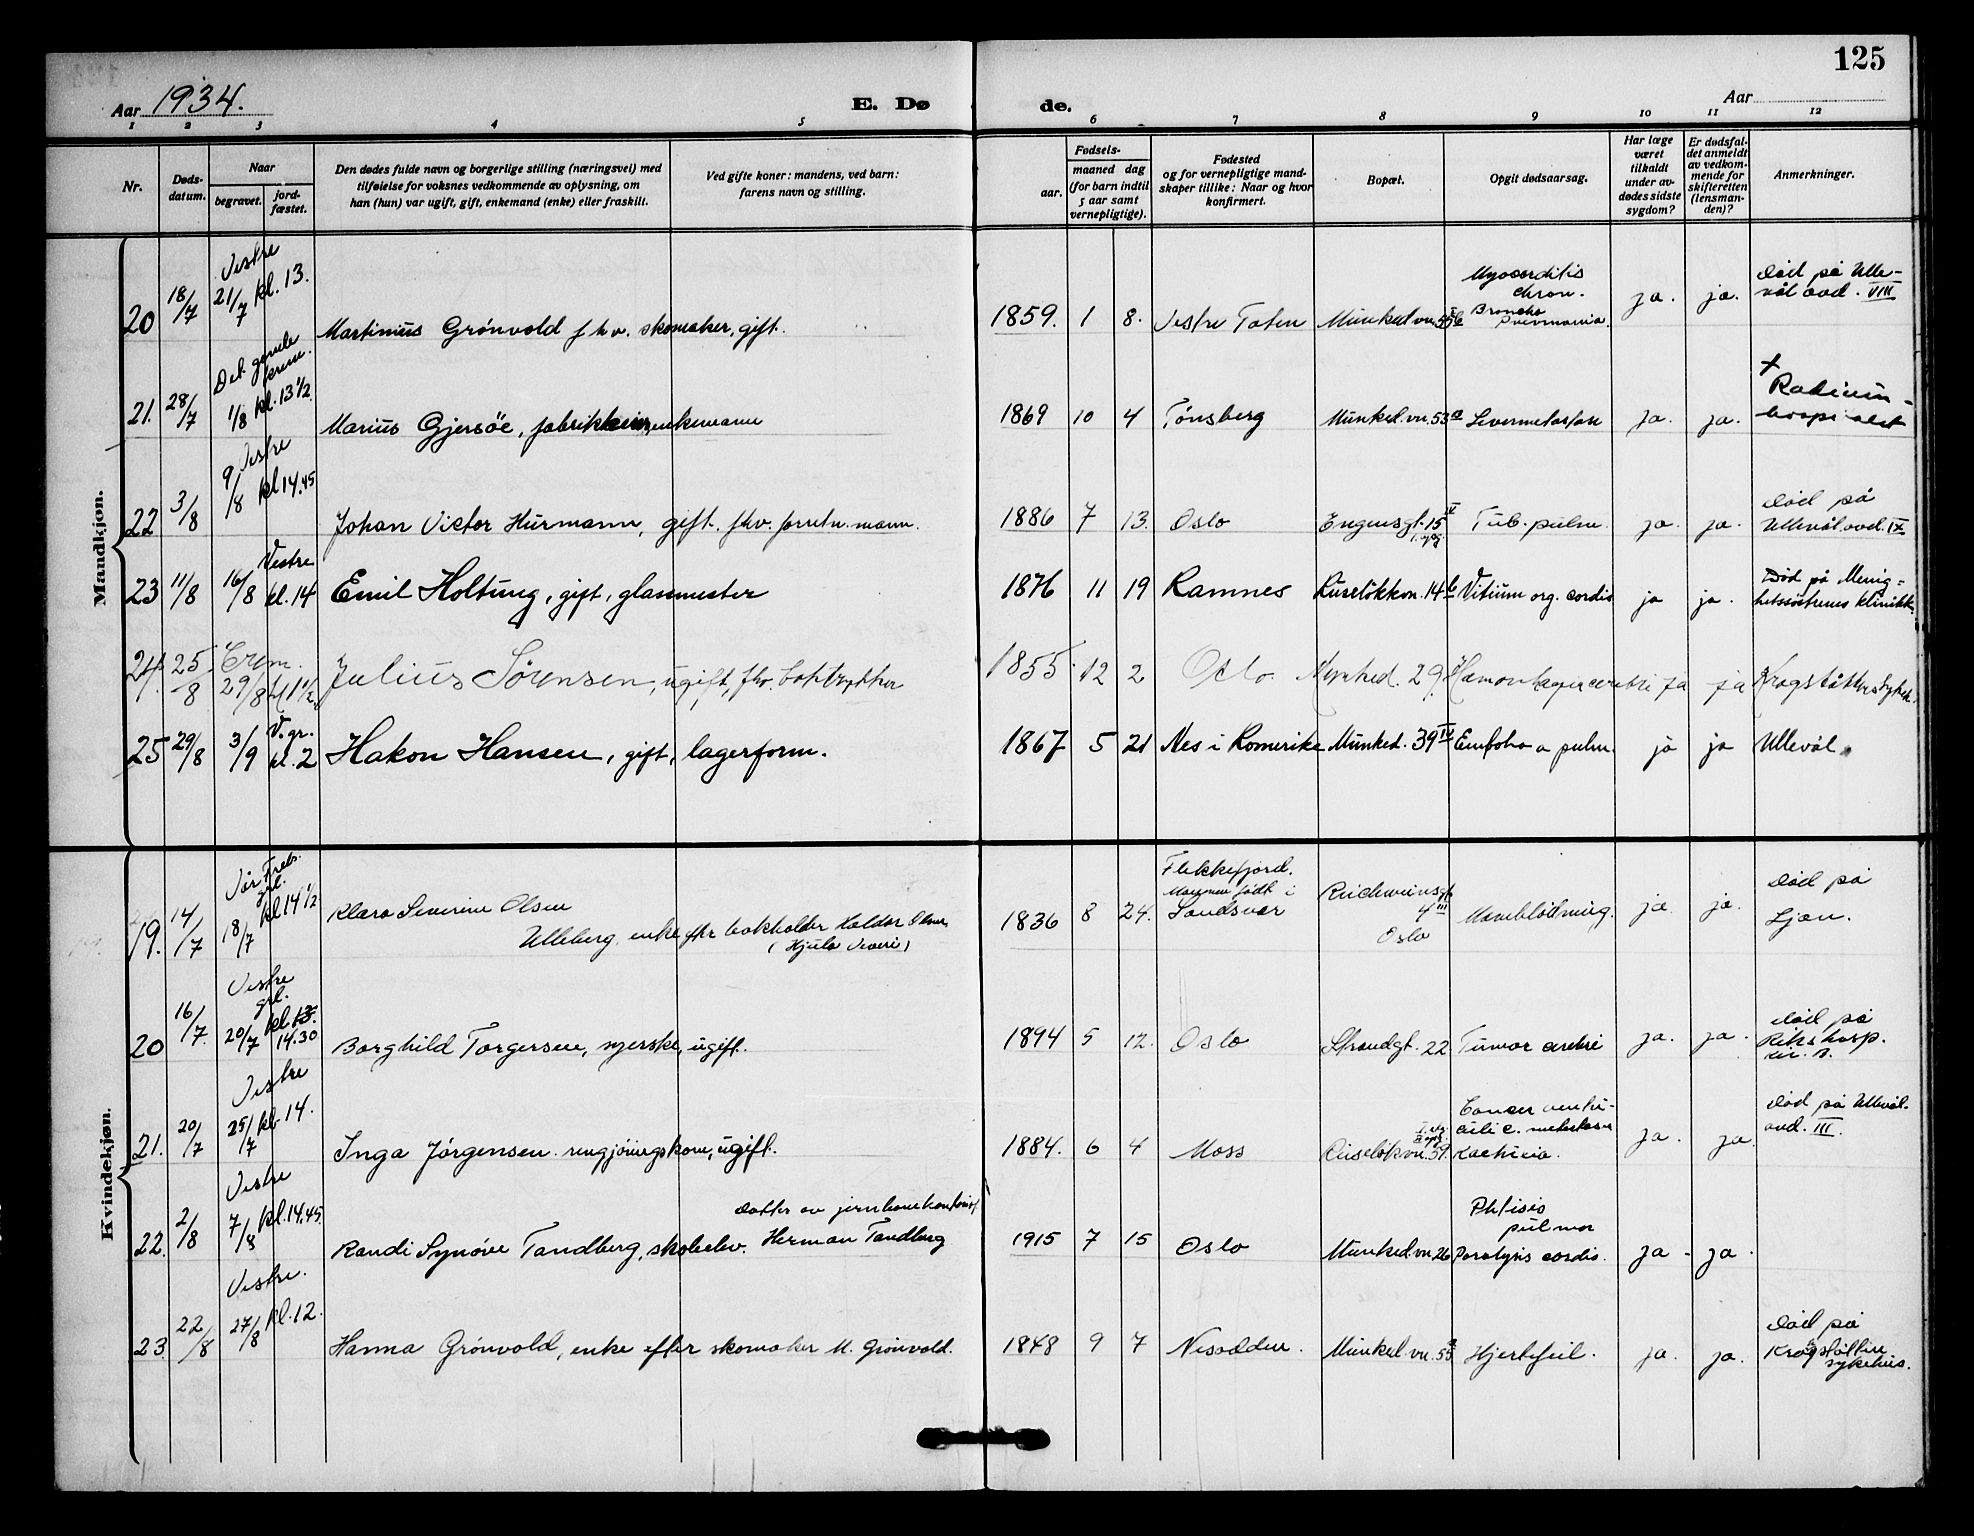 125
Aar 1934.
E. Dø
de.
Aar
1 2 3 4 5 6 7 8 9 10 11 12
Nr.
Døds-
datum.
Naar
begravet.
jord-
fæstet.
Den dødes fulde navn og borgerlige stilling (næringsvei) med
tilføielse for voksnes vedkommende av oplysning, om
han (hun) var ugift, gift, enkemand (enke) eller fraskilt.
Ved gifte koner: mandens, ved barn:
farens navn og stilling.
Fødsels-
aar.
maaned dag
(for barn indtil
5 aar samt
vernepligtige).
Fødested
og for vernepligtige mand-
skaper tillike: Naar og hvor
konfirmert.
Bopæl.
Opgit dødsaarsag.
Har læge
været
tilkaldt
under av-
dødes sidste
sygdom?
Er dødsfal-
det anmeldt
av vedkom-
mende for
skifteretten
(lensman-
den)?
Anmerkninger.
Mandkjøn.
20 18/7 Vestre 21/7 kl. 13. Martinius Grønvold fhv. skomaker, gift. 1859. 1 8. Vestre Toten Munked.vn. 55 Myocarditis chron. Broncho pneumonia. ja. ja. Död på Ulle-
vål avd. VIII
21. 28/7 Det gamle krem. 1/8 kl. 13 1/2 Marius Gjersöe, enkemann 1869 10 4 Tønsberg Munked.vn. 53a Levermetastase ja. ja. + Radium-
hospitalet
22 3/8 Vestre 9/8 kl 14.45 Johan Victor Hurmann, gift. fhv. forretn. mann. 1886 7 13. Oslo Engensgt. 15 Tub. pulm. ja. ja. Död på
Ullevål avd. IX
23 11/8 16/8 Vestre kl. 14 Emil Holtung, gift, glassmester 1876 11 19 Ramnes Ruselökkvn. 14b Vitium org. cordis ja ja. Död på Menig-
hetssöstrenes klinikk.
24. 25/8 Crem. 29/8 kl 1 1/2 Julius Sörensen, ugift, fhv. boktrykker 1855. 12 2 Oslo Munked. 29. Hæmorrhagia cerebri ja ja Krogstöttens sykeh.
25 29/8 3/9 V.gr. kl. 2 Hakon Hansen, gift, lagerform. 1867 5 21 Nes i Romerike Munked. 39 IV pulm. ja ja Ullevål.
Kvindekjøn.
19. 14/7 Vår Frels. grl. 18/7 kl 14 1/2 Klara Severine Olsen
Ulleberg, enke efter bokholder Haldor Olsen
(Hjula Veveri)
1836 8 24. Flekkefjord.
Sandsvær Reichweinsgt 4 III
Oslo ja. ja. Död på
Ljan.
20 16/7. Vestre grl. 20/7 kl. 13. 14.30 Borghild Torgersen, syerske, ugift. 1894 5 12. Oslo Strandgt. 22 Tumor cerebri ja. ja. Död på
Rikshosp.
21. 20/7 Vestre 25/7 kl. 14. Inga Jörgensen. rengjöringskone, ugift. 1884. 6 4 Moss Ruselökvn. 59. Cancer ventri-
culi c. metastaser
ja. ja. Död på Ullevål.
avd. III.
22. 2/8 Vestre 7/8 kl. 14.45 Randi Synöve Tandberg, skoleelev. Datter av jernbanekontorist
Herman Tandberg
1915 7 15 Oslo Munked.vn. 26 Phtisis
pulmon
Paralysis cordis. ja. ja.
23. 22/8 Vestre. 27/8 kl. 12. Hanna Grönvold, enke efter skomaker M. Grönvold. 1848 9 7 Nesodden. Munked.vn. 55 Hjertefeil. ja. ja. Död på
Krogstötten
sykehus.